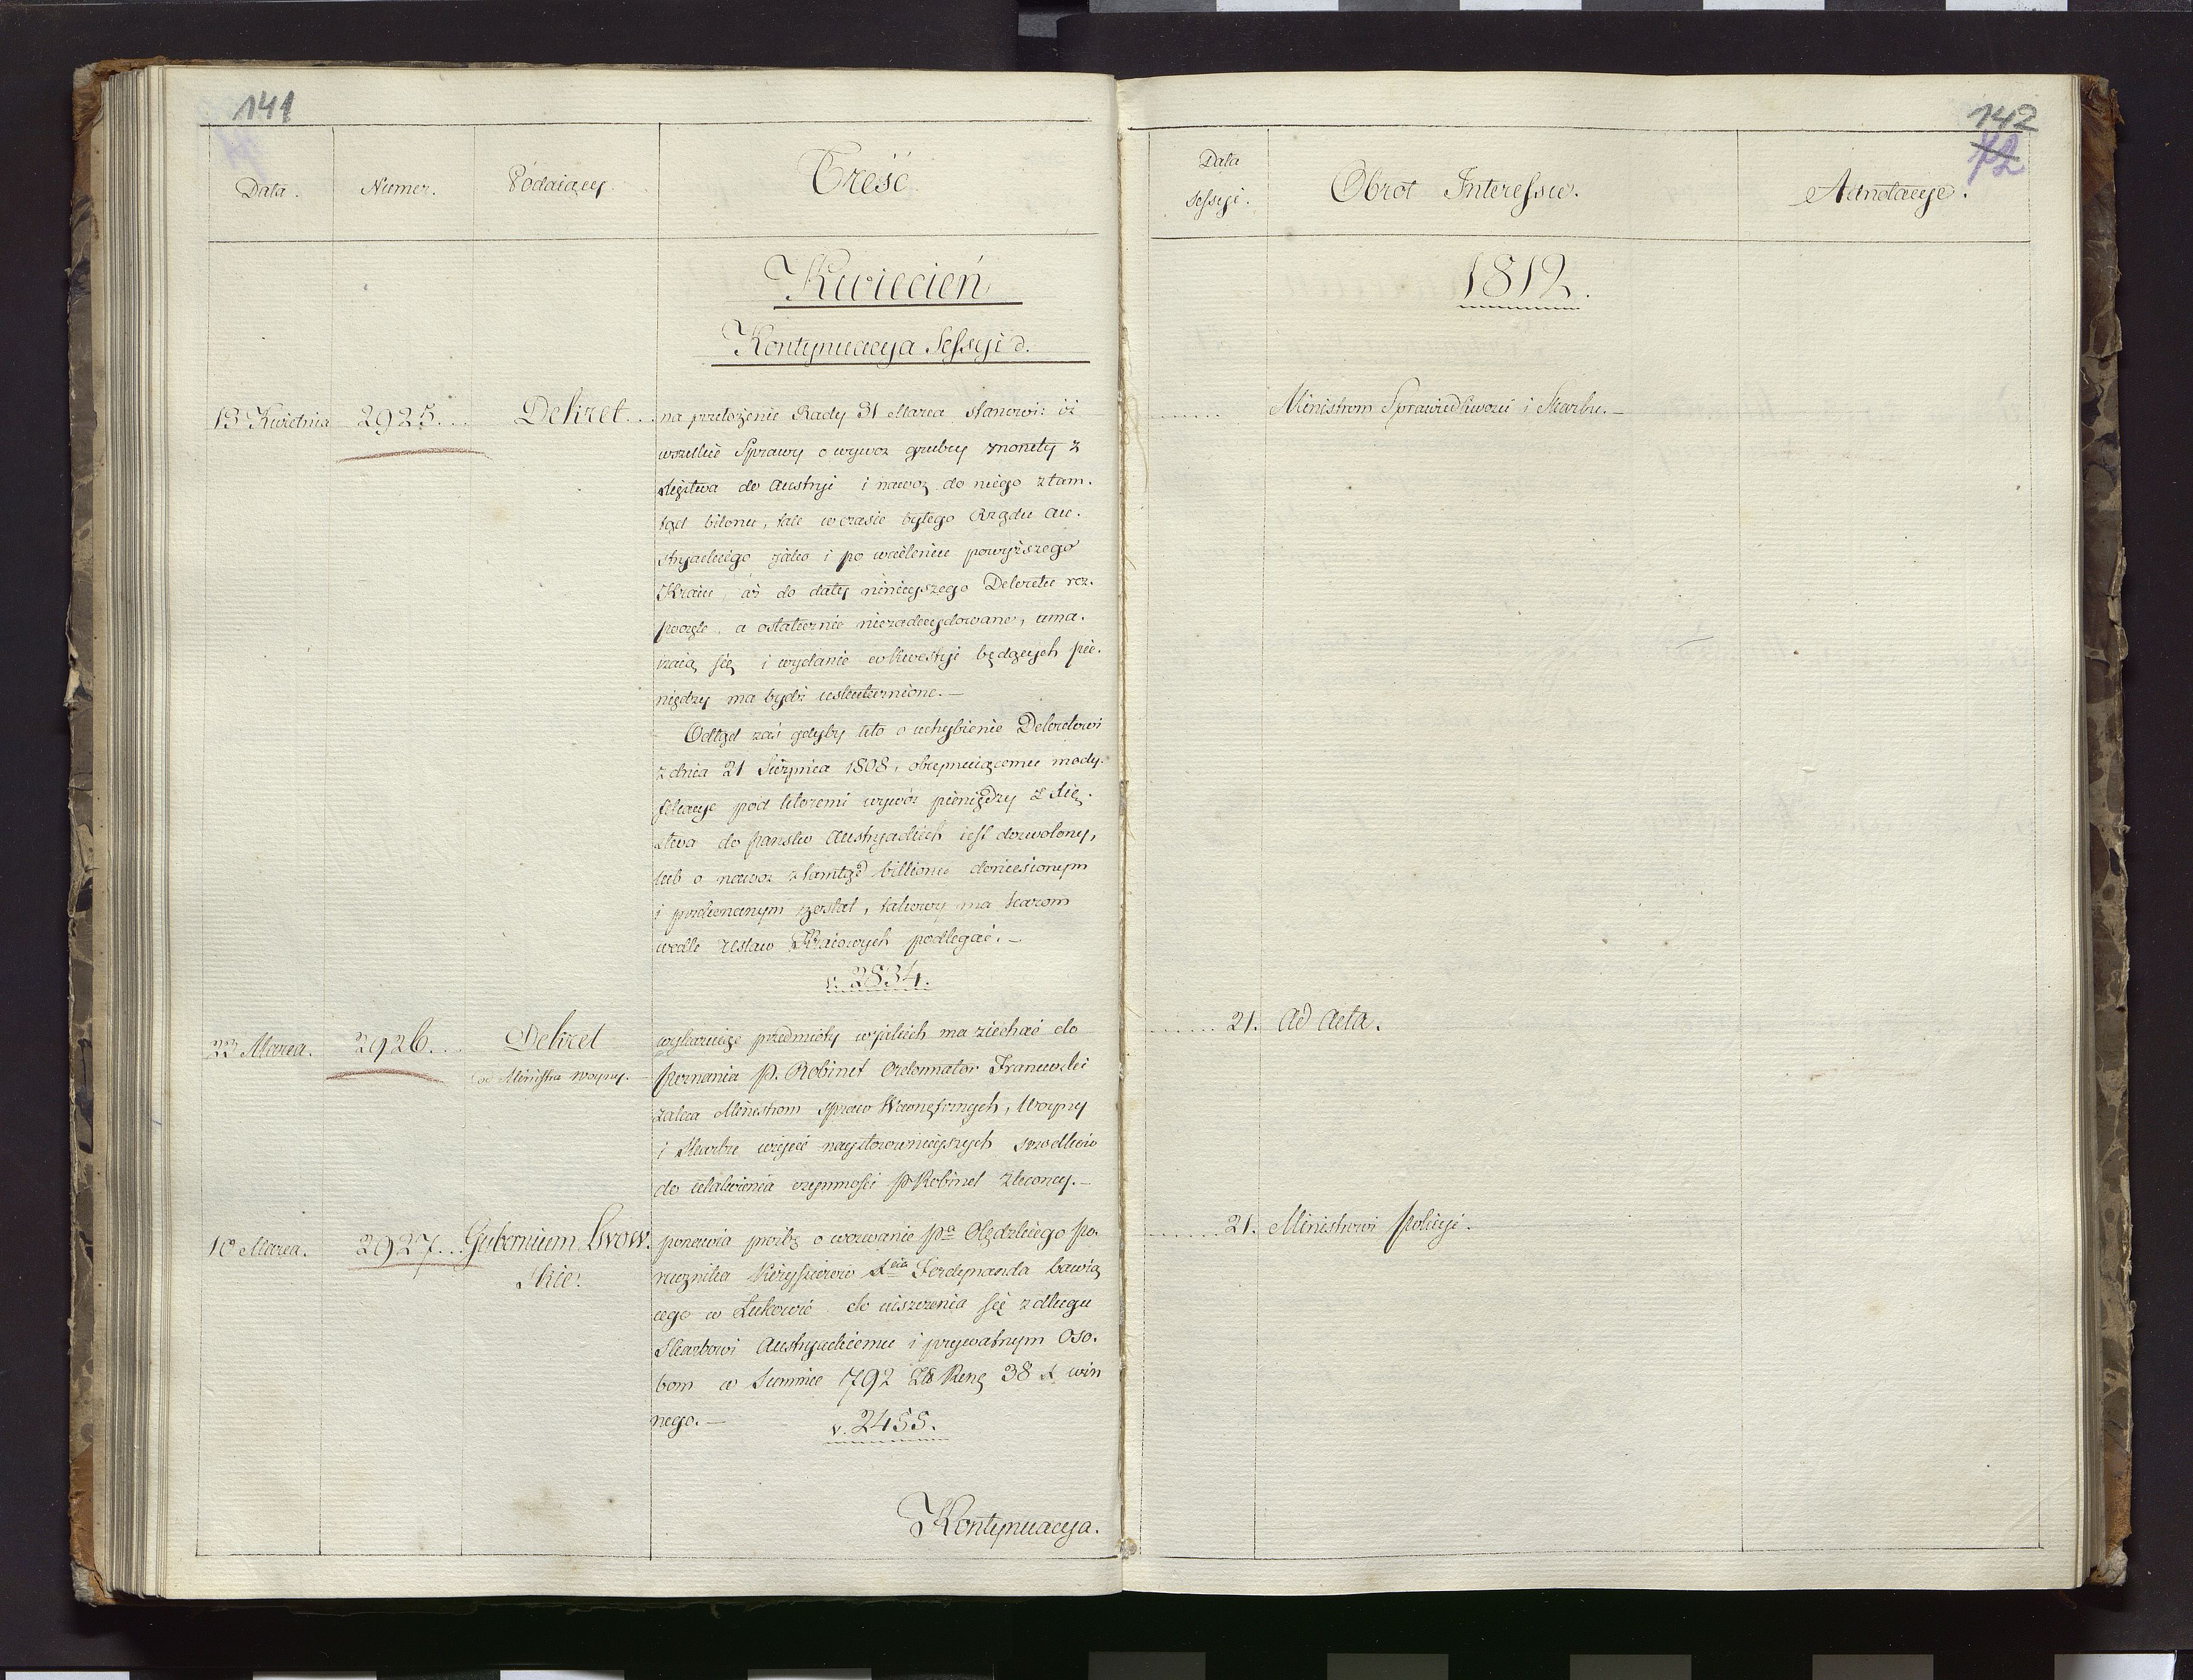 141
Data.
Numer.
Podaiący.
Treść
Kwiecień
Kontynuacya Sessyi d.
13 Kwietnia
2925...
Dekret...
na przełożenie Rady 31 Marca stanowi: iż
wszelkie Sprawy o wywoz grubey monety z
Xięztwa do Austryi i nawoz do niego ztam-
tąd bilonu, tak w czasie byłego Rządu Au-
stryackiego jako i po wcieleniu powyższego
Kraiu, aż do daty ninieyszego Dekretu roz-
poczęte, a ostatecznie niezadecydowane, uma-
rzaią się i wydanie w kwestyi będących pie-
niędzy ma bydź uskutecznione.—
Odtąd zaś gdyby kto o uchybienie Dekretowi
z dnia 21 Sierpnia 1808, obeymuiącemu mody-
fikacye pod ktoremi wywóz pieniędzy z Xię-
ztwa do państw Austryackich iest dozwolony,
lub o nawoz ztamtąd billionu doniesionym
i przekonanym został, takowy ma karom
wedle ustaw Kraiowych podlegać.—
v. 2834.
23 Marca.
2926...
Dekret
od Ministra Woyny.
wykazuiąc przedmioty w jakich ma ziechać do
Poznania P. Robinet Ordonnator Francuzki
zaleca Ministrom Spraw Wewnętrznych, Woyny
i Skarbu użycie naystosownieyszych srzodków
do ułatwienia czynności P Robinet zleconey.—
10 Marca.
2927...
Gubernium Lwow-
skie.
ponawia prośbę o wezwanie Pa Olędzkiego po-
rucznika Kirysierów Xcia Ferdynanda bawią
cego w Łukowie do uiszczenia się z długu
Skarbowi Austryackiemu i prywatnym Oso-
bom w Summie 1792 Zł Reng 38 x win
nego.—
v. 2455.
Kontynuacya.
142
72
Data
Sessyi.
Obrót Interessu.
Adnotacye.
1812.
Ministrom Sprawiedliwości i Skarbu.—
21. Ad Acta.
21. Ministrowi Policyi.